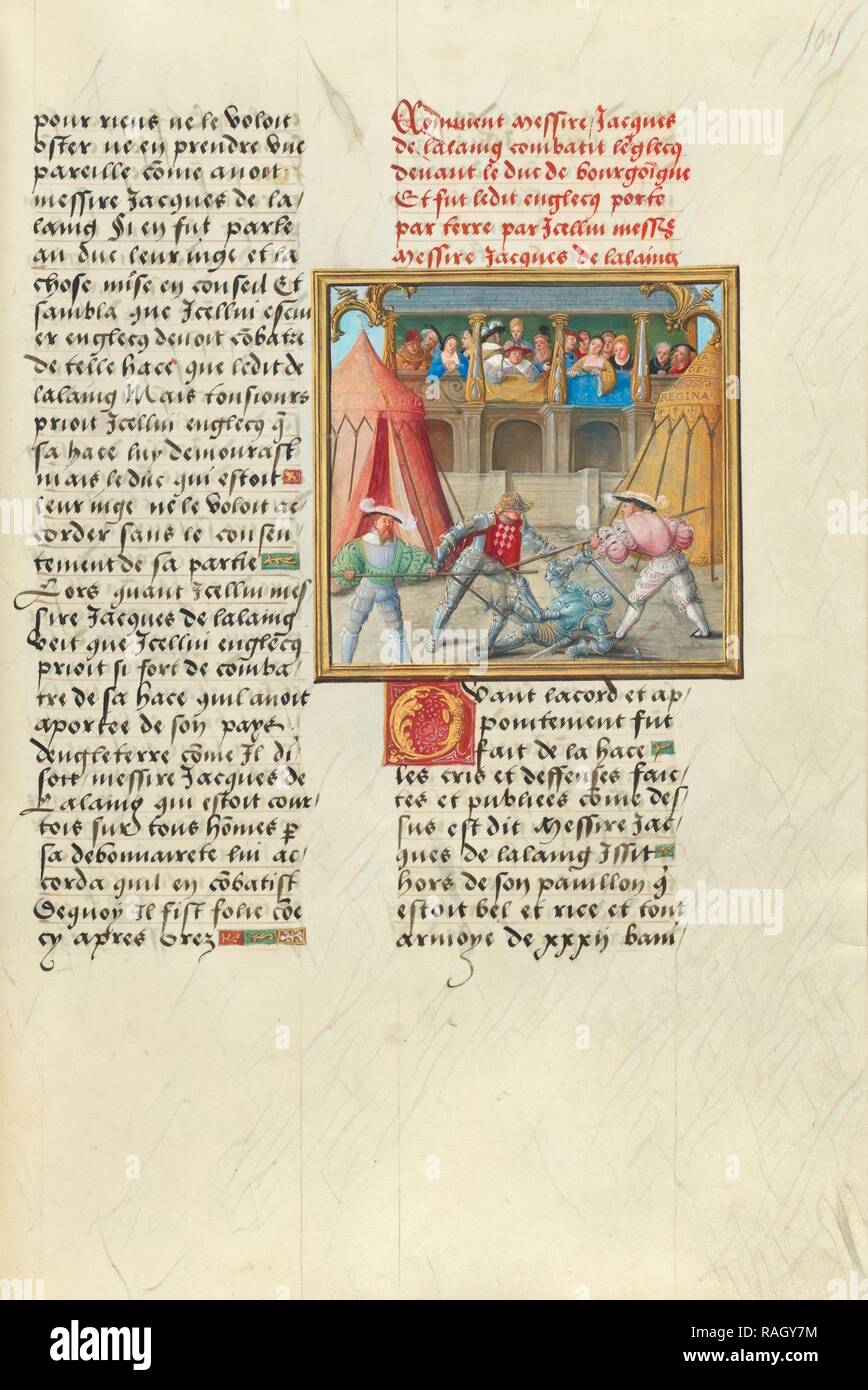 104
pour riens ne le voloit
oster ne en prendre une
pareille come avoit
messire Jacques de la/
laing Si en fut parle
au duc leur iuge et la
chose mise en conseil Et
sambla que Icellui escui
er englecq devoit cõbatre
de telle hace que ledit de
lalaing Mais tousiours
prioit Icellui englecq q̃
sa hace luy demourast
mais le duc qui estoit
leur iuge ne le voloit ac/
corder sans le consen/
tement de sa partie
Lors quant Icellui mes/
sire Jacques de lalaing
veit que Icellui englecq
prioit si fort de comba/
tre de sa hace quil avoit
aportee de son pays
dengleterre cõme Il di/
soit messire Jacques de
Lalaing qui estoit cour/
tois sur tous hõmes p
sa debonnairete lui ac/
corda quil en cõbatist
Dequoy Il fist folie cõe
cy apres orez
Comment messire Jacques
de lalaing combatit lenglecq
devant le duc de bourgoigne
Et fut ledit englecq porte
par terre par Icellui mess̃
messire Jacques de lalaing
REGINA
Quant lacord et ap/
pointement fut
fait de la hace
les cris et deffenses faic/
tes et publiees cõme des/
sus est dit Messire Jac/
ques de lalaing Issit
hors de son pavillon q̃
estoit bel et rice et tout
armoye de xxxij bani/
alamy
Image ID: RAGY7M
www.alamy.com